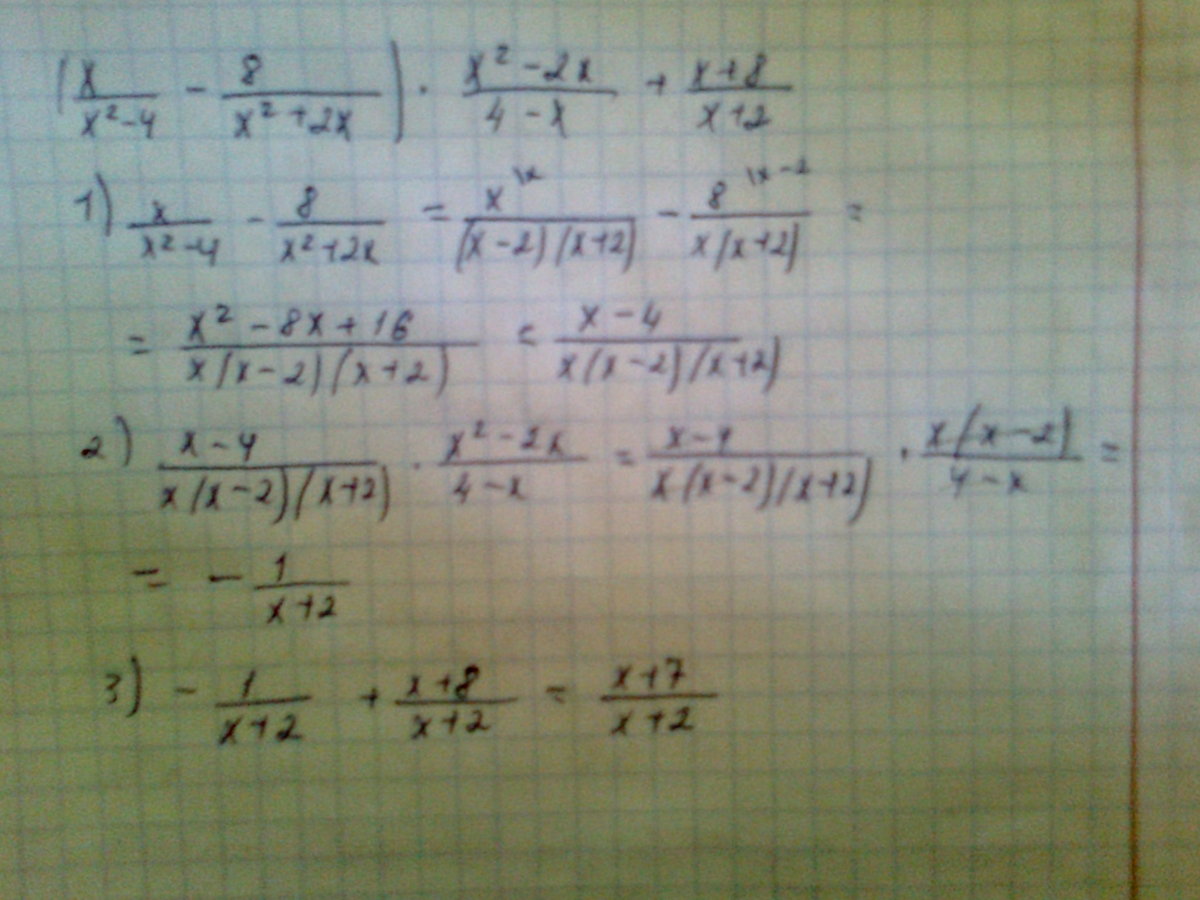 (x/(x²-4) - 8/(x²+2x)) · (x²-2x)/(4-x) + (x+8)/(x+2)
1) x/(x²-4) - 8/(x²+2x) = x^{\x}/((x-2)(x+2)) - 8^{\x-2}/(x(x+2)) =
= (x²-8x+16)/(x(x-2)(x+2)) = (x-4)/(x(x-2)(x+2))
2) (x-4)/(x(x-2)(x+2)) · (x²-2x)/(4-x) = (x-4)/(x(x-2)(x+2)) · (x(x-2))/(4-x) =
= - 1/(x+2)
3) - 1/(x+2) + (x+8)/(x+2) = (x+7)/(x+2)